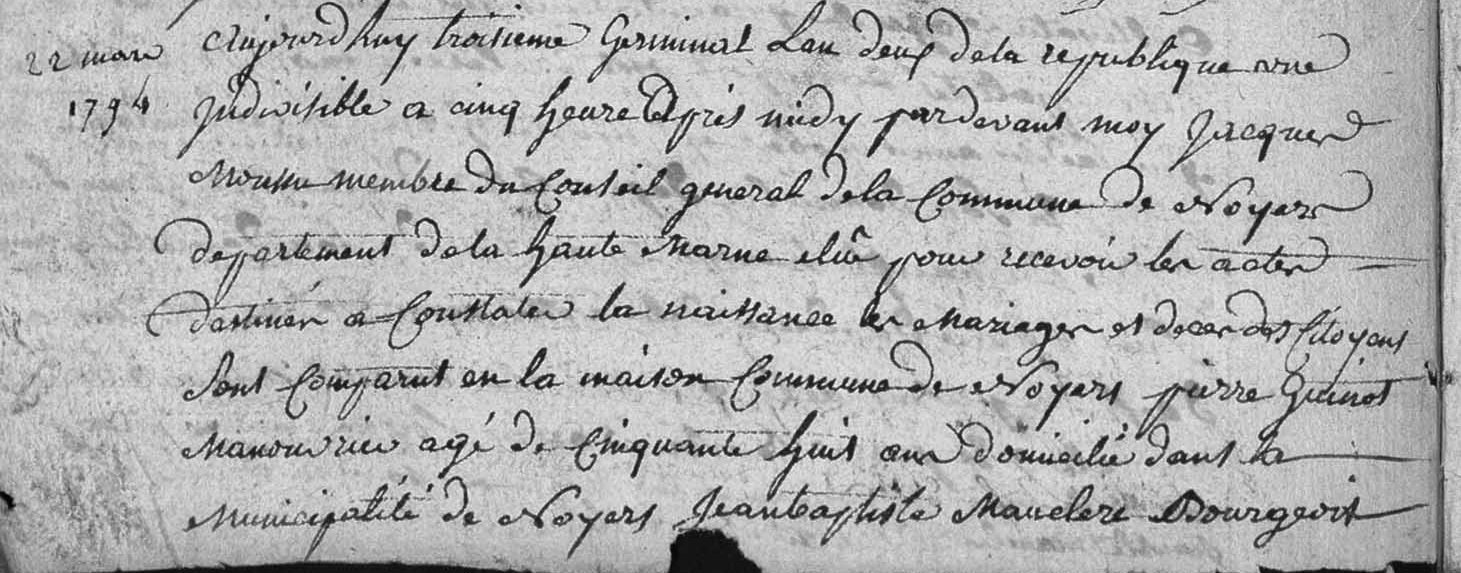 22 mars
1794
Aujourdhuy troisieme Germinal Lan deux de la republique une
Judivisible a cinq heure apres midy pardevant moy Jacques
Moussu membre du Conseil general de la Commune de Noyers
departement de la haute Marne elû pour recevoir les actes
destinés a Constater la naissance les Mariages et deces des Citoyens
Sont Comparut en la maison Commune de Noyers pierre Guinot
Manouvrier agé de Cinquante huit ans domicilié dans la
Municipalité de Noyers Jeanbaptiste Mauclere Bourgeois